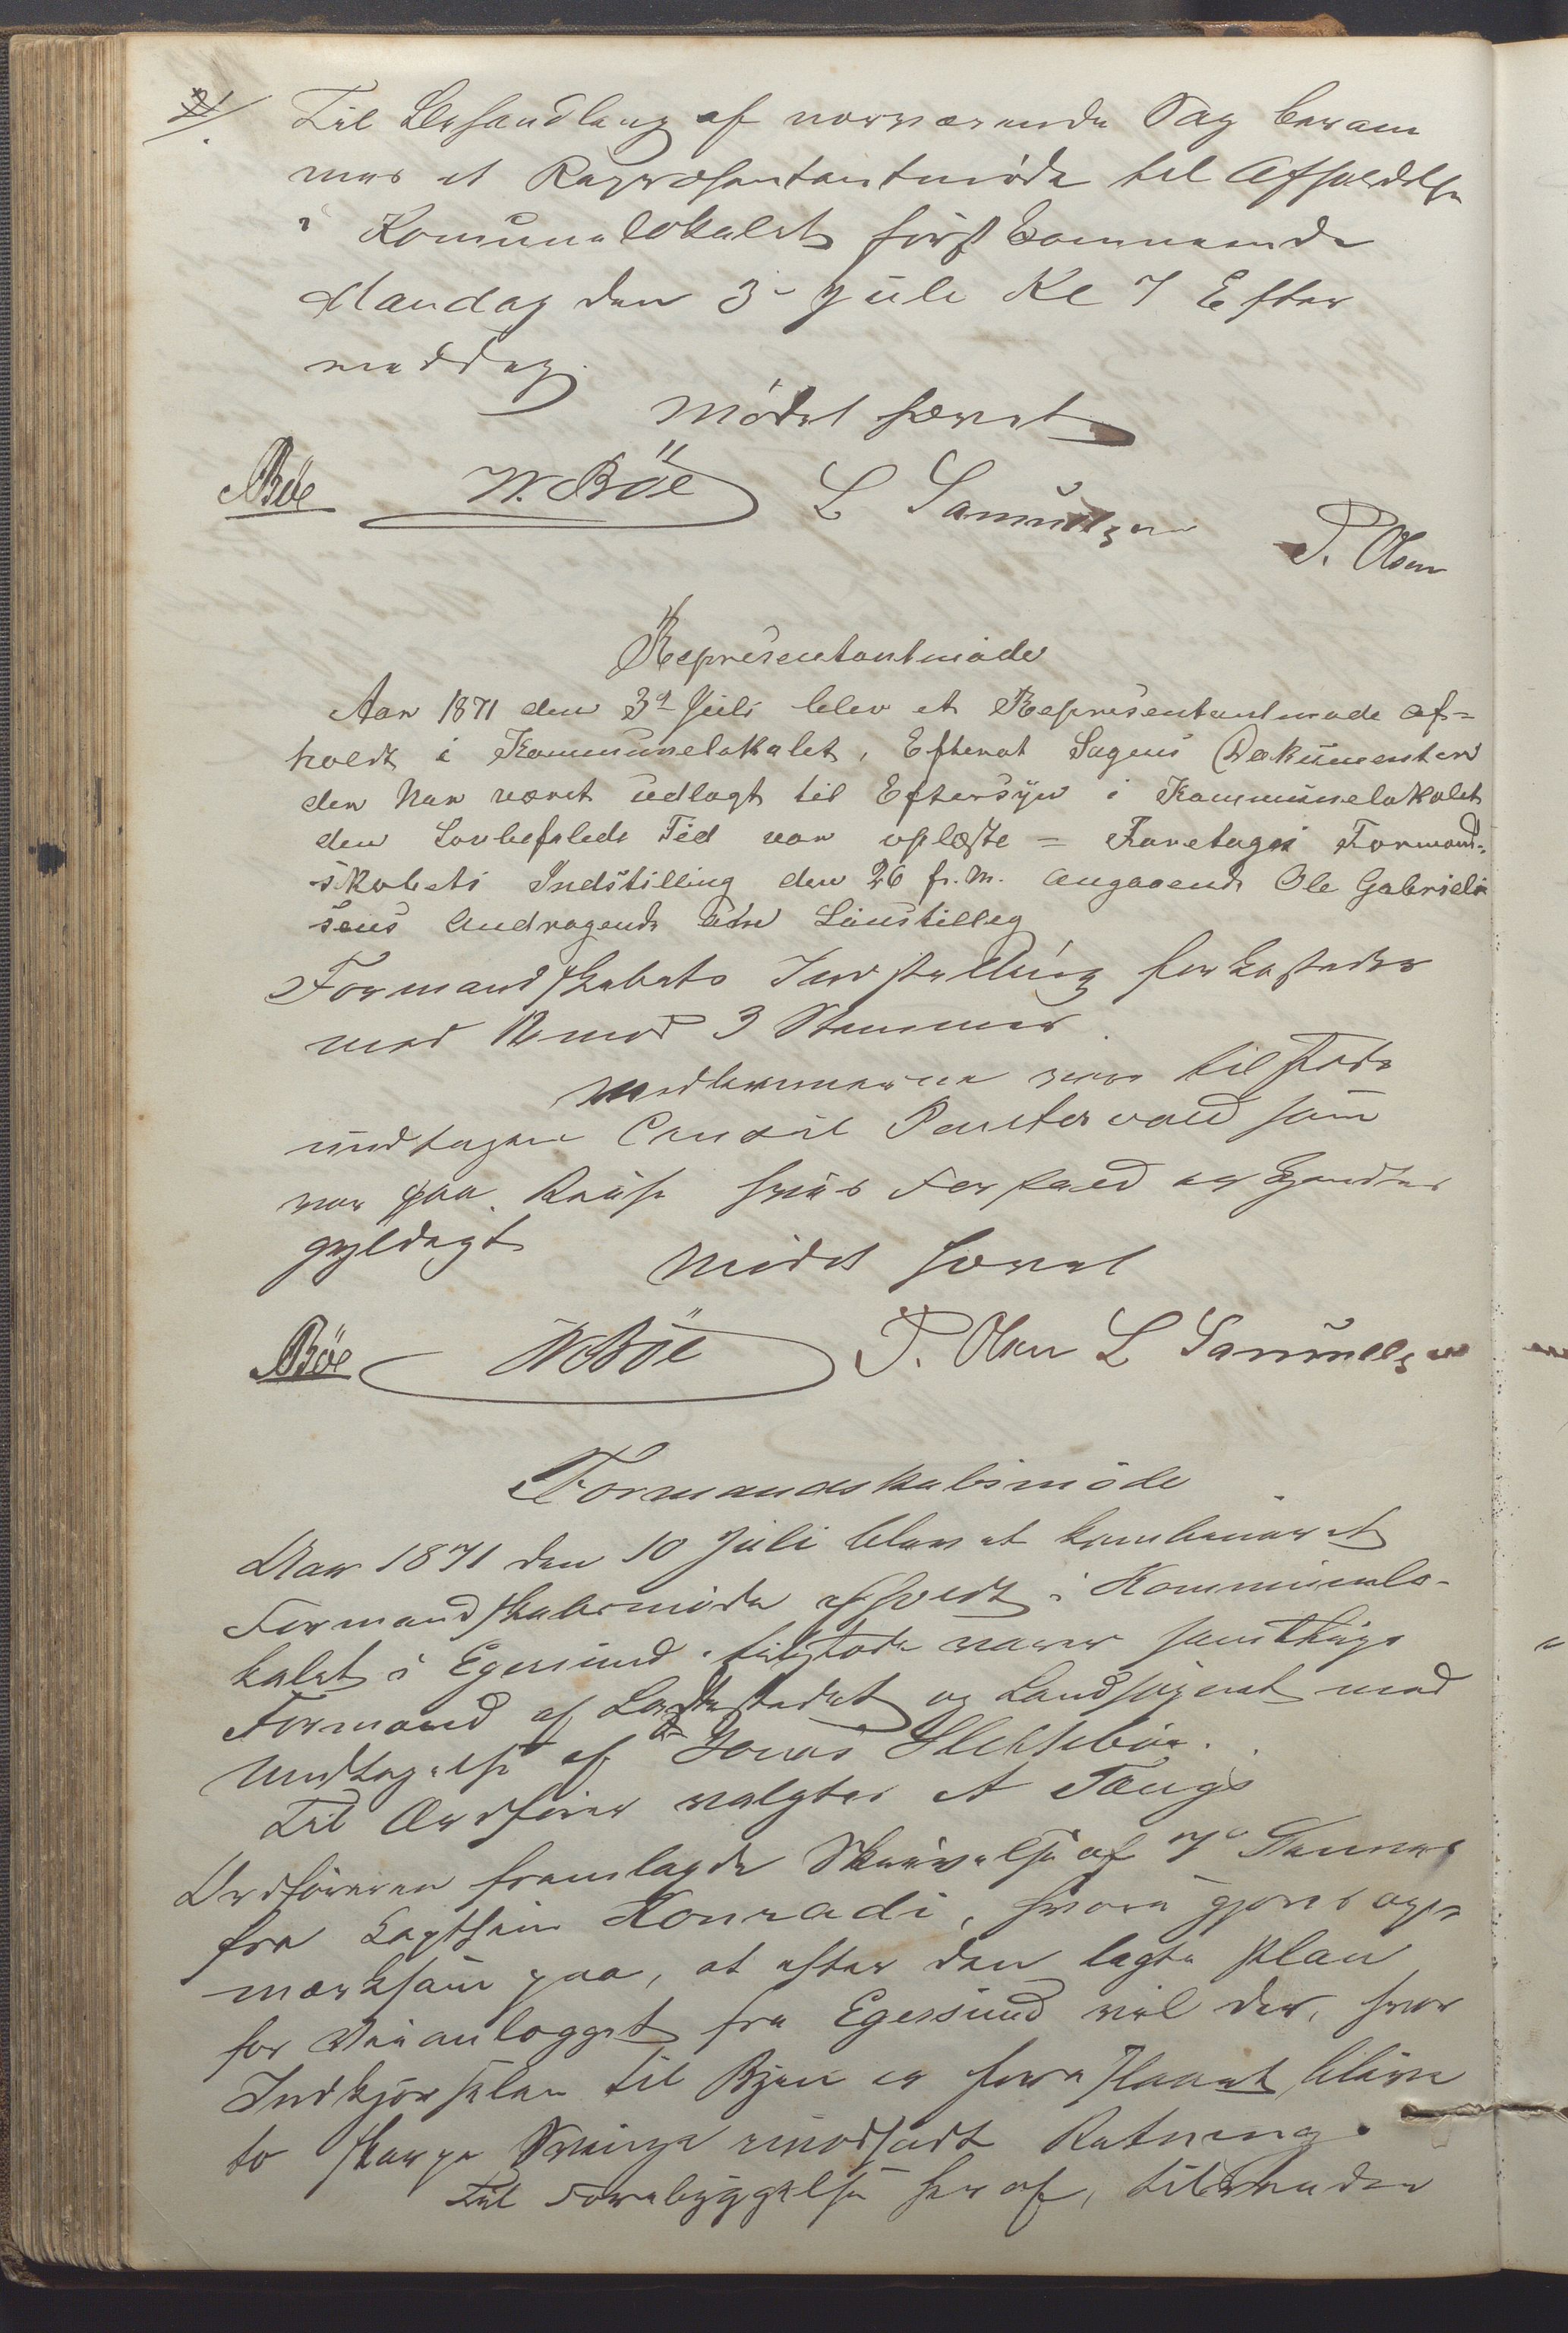 2/. Til Behandling af nærværende Sag beram
mes et Repræsentantmöde til Afholdelse
i Komunelokalet förstkommende
Mandag den 3 Juli Kl 7 Efter
middag.
Mödet hævet
ABöe W. Böe L Samuelsen
P. Olsen
Representantmöde
Aar 1871 den 3d Juli blev et Representantmøde af=
holdt i Kommunelokalet, Efterat Sagens Dokumenter
der har været udlagt til Eftersÿn i Kommunelokalet
den Lovbefalede Tid var oplæste = Foretages Formand=
skabets Indstilling den 26 f.M. angaaende Ole Gabriels
sens Andragende om Löustilleg
Formandskabets Indstilling forkastedes
med 12 mod 3 Stemmer.
Medlemmerne vare tilstede
undtagen Consul Puntervold som
var paa Reise hvis Forfald er kjendtes
gyldigt
Mödet hævet
ABöe W Böe P. Olsen L Samuelsen
Formandskabsmöde
Aar 1871 den 10 Juli blev et kombineret
Formandskabsmöde afholdt i Kommunelo-
kalet i Egersund. tilstede varer samtlige
Formænd af Ladestedet og Landsognet med
Undtagelse af Jonas Slettebö.
Til Ordförer valgtes A Tengs
Ordföreren fremlagde Skrivelse af 7de Dennes
fra Kaptein Konradi, hvori gjöres opp
mærksom paa, at efter den lagte Plan
for Veianlægget fra Egersund vil der, hvor
Indkjörselen til Byen er foreslaaet blive
to skarpe Svinge i modsadt Retning.
Til Forebyggelse heraf, tilraader